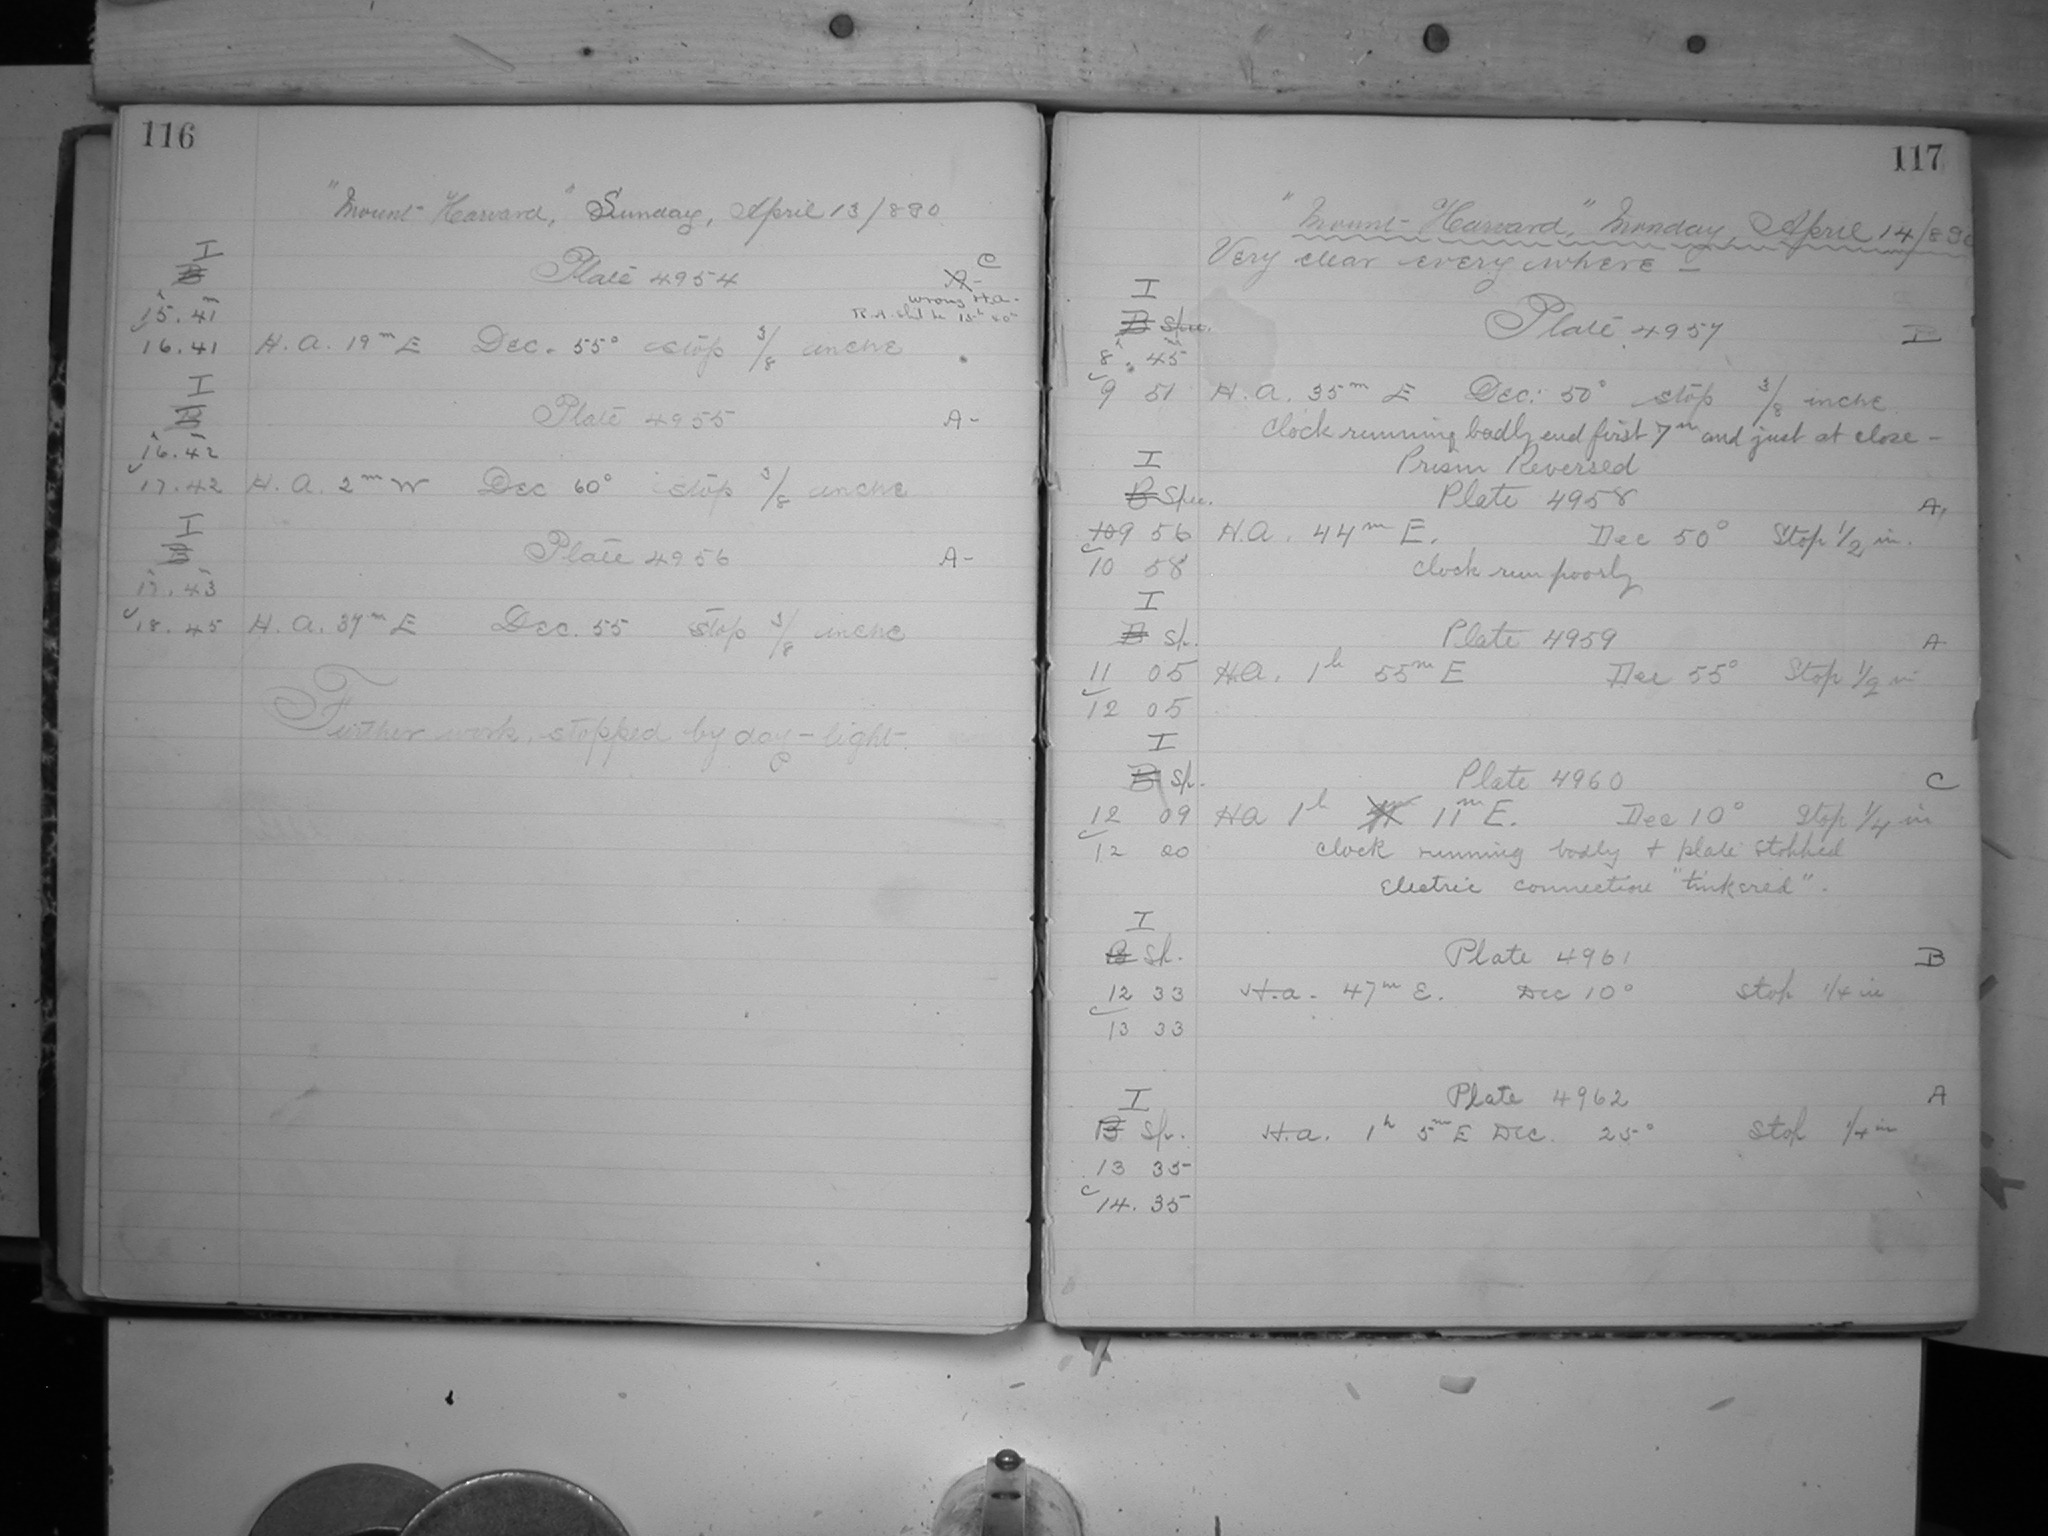 116
"Mount Harvard," Sunday, April 13/890
I
B Plate 4954 A- C
wrong H.A.-
15h. 41m R.A. shd be
16.41 H.A. 19m E Dec. 55° stop 3/8 inche
I
B Plate 4955 A-
16h.42m
17.42 H.A. 2m W Dec 60° stop 3/8 inche
I
B Plate 4956 A-
17h.43m
18.45 H.A. 37m E Dec. 55 stop 3/8 inche
Further work stopped by day-light.
117
"Mount Harvard," Monday, April 14/890
Very clear every where -
I
B Spec. Plate 4957
8h.45m
9 51 H.A. 35m E Dec: 50° stop 3/8 inche
Clock running badly end first 7m and just at close -
I Prism Reversed
B Spec. Plate 4958 A,
109 56 H.A. 44m E. Dec 50° Stop 1/2 in.
10 58 clock run poorly
I
B Sp. Plate 4959 A
11 05 H.A. 1h 55m E Dec 55° Stop 1/2 in
12 05
I
B Sp. Plate 4960 C
12 09 HA 1h 11m E. Dec 10° Stop 1/4 in
12 20 clock running badly + plate stopped
Electric connection "tinkered".
I
B Sp. Plate 4961 B
12 33 H.a. 47m E. Dec 10° stop 1/4 in
13 33
I Plate 4962 A
B Sp. H.a. 1h 5m E Dec. 25° stop 1/4 in
13 35
14.35